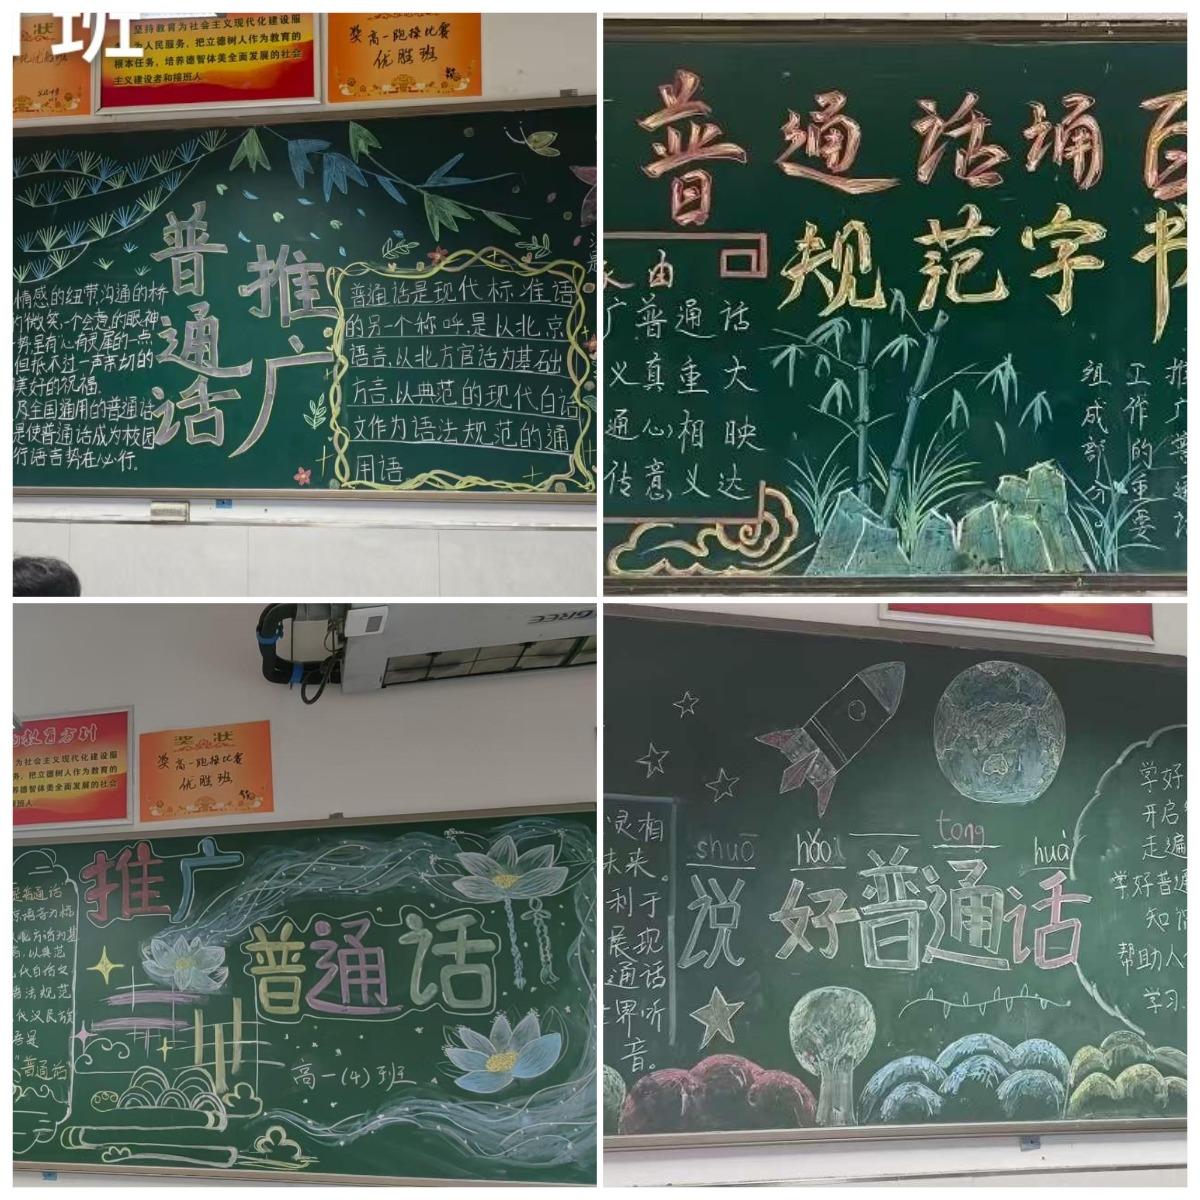 班
坚持教育为社会主义现代化建设服
为人民服务，把立德树人作为教育的
根本任务，培养德智体美全面发展的社会
主义建设者和接班人
奖高一跑操比赛
优胜班
推广
普通话
情感的纽带沟通的桥
微笑,一个会意的眼神
但抵不过一声亲切的
美好的祝福.
及全国通用的普通话
是使普通话成为校园
行语言势在必行.
普通话是现代标准语
的另一个称呼,是以北京
语言,以北方官话为基础
方言,以典范的现代白话
文作为语法规范的通
用语
普通话诵百
规范字书
由
广普通话
义真重大
通心相映
传意义达
推广普通话
工作的重要
组成部分
教育方针
为社会主义现代化建设服
务，把立德树人作为教育的
养德智体美全面发展的社会
接班人
奖状
奖高一跑操比赛
优胜班
推广
普通话
是普通话
以北方话为基
以典范
代白话文
语法规范
代汉民族
"普通话"
高一(4)班
shuō hǎo tong huà
说好普通话
灵相
未来。
利于
展现
通话
界听
音。
学好
开启
走遍
学好普通
知
帮助人
学习